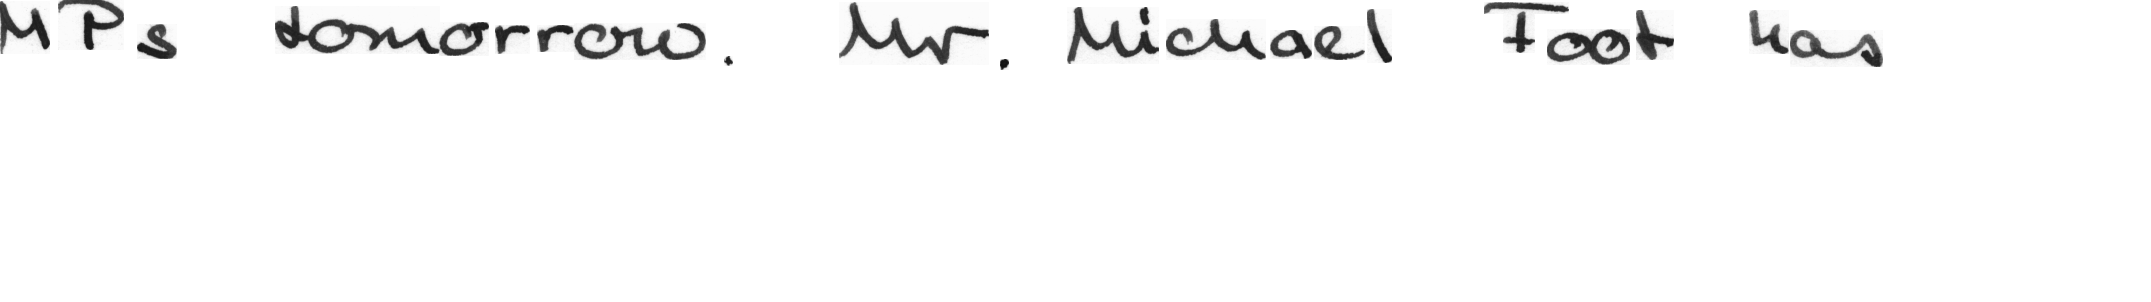 MPs tomorrow. Mr. Michael Foot has